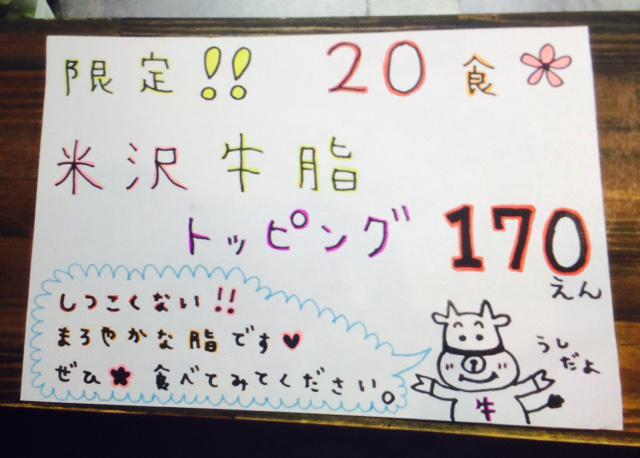 限定!! 20食
米沢牛脂
トッピング 170えん
しつこくない!!
まろやかな脂です♥
ぜひ 食べてみてください。
うし
だよ
牛